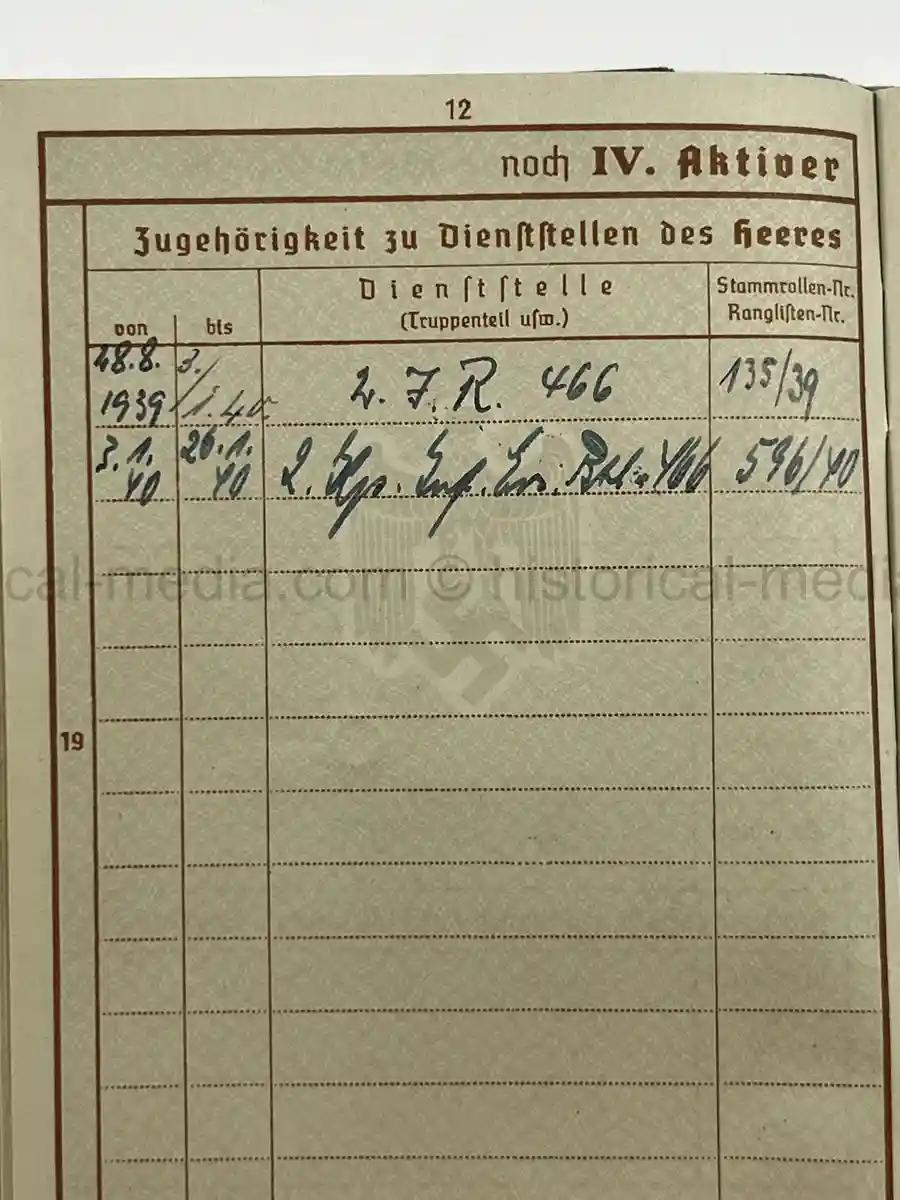 12
noch IV. Aktiver
Zugehörigkeit zu Dienststellen des Heeres
von bis Dienststelle (Truppenteil usw.) Stammrollen-Nr. Ranglisten-Nr.
28.8. 1939 3./1.40. 2. J. R. 466 135/39
3.1. 40 26.1. 40 2. Kp. Inf. Ers. Btl. 466 596/40
19
cal-media.com © historical-media